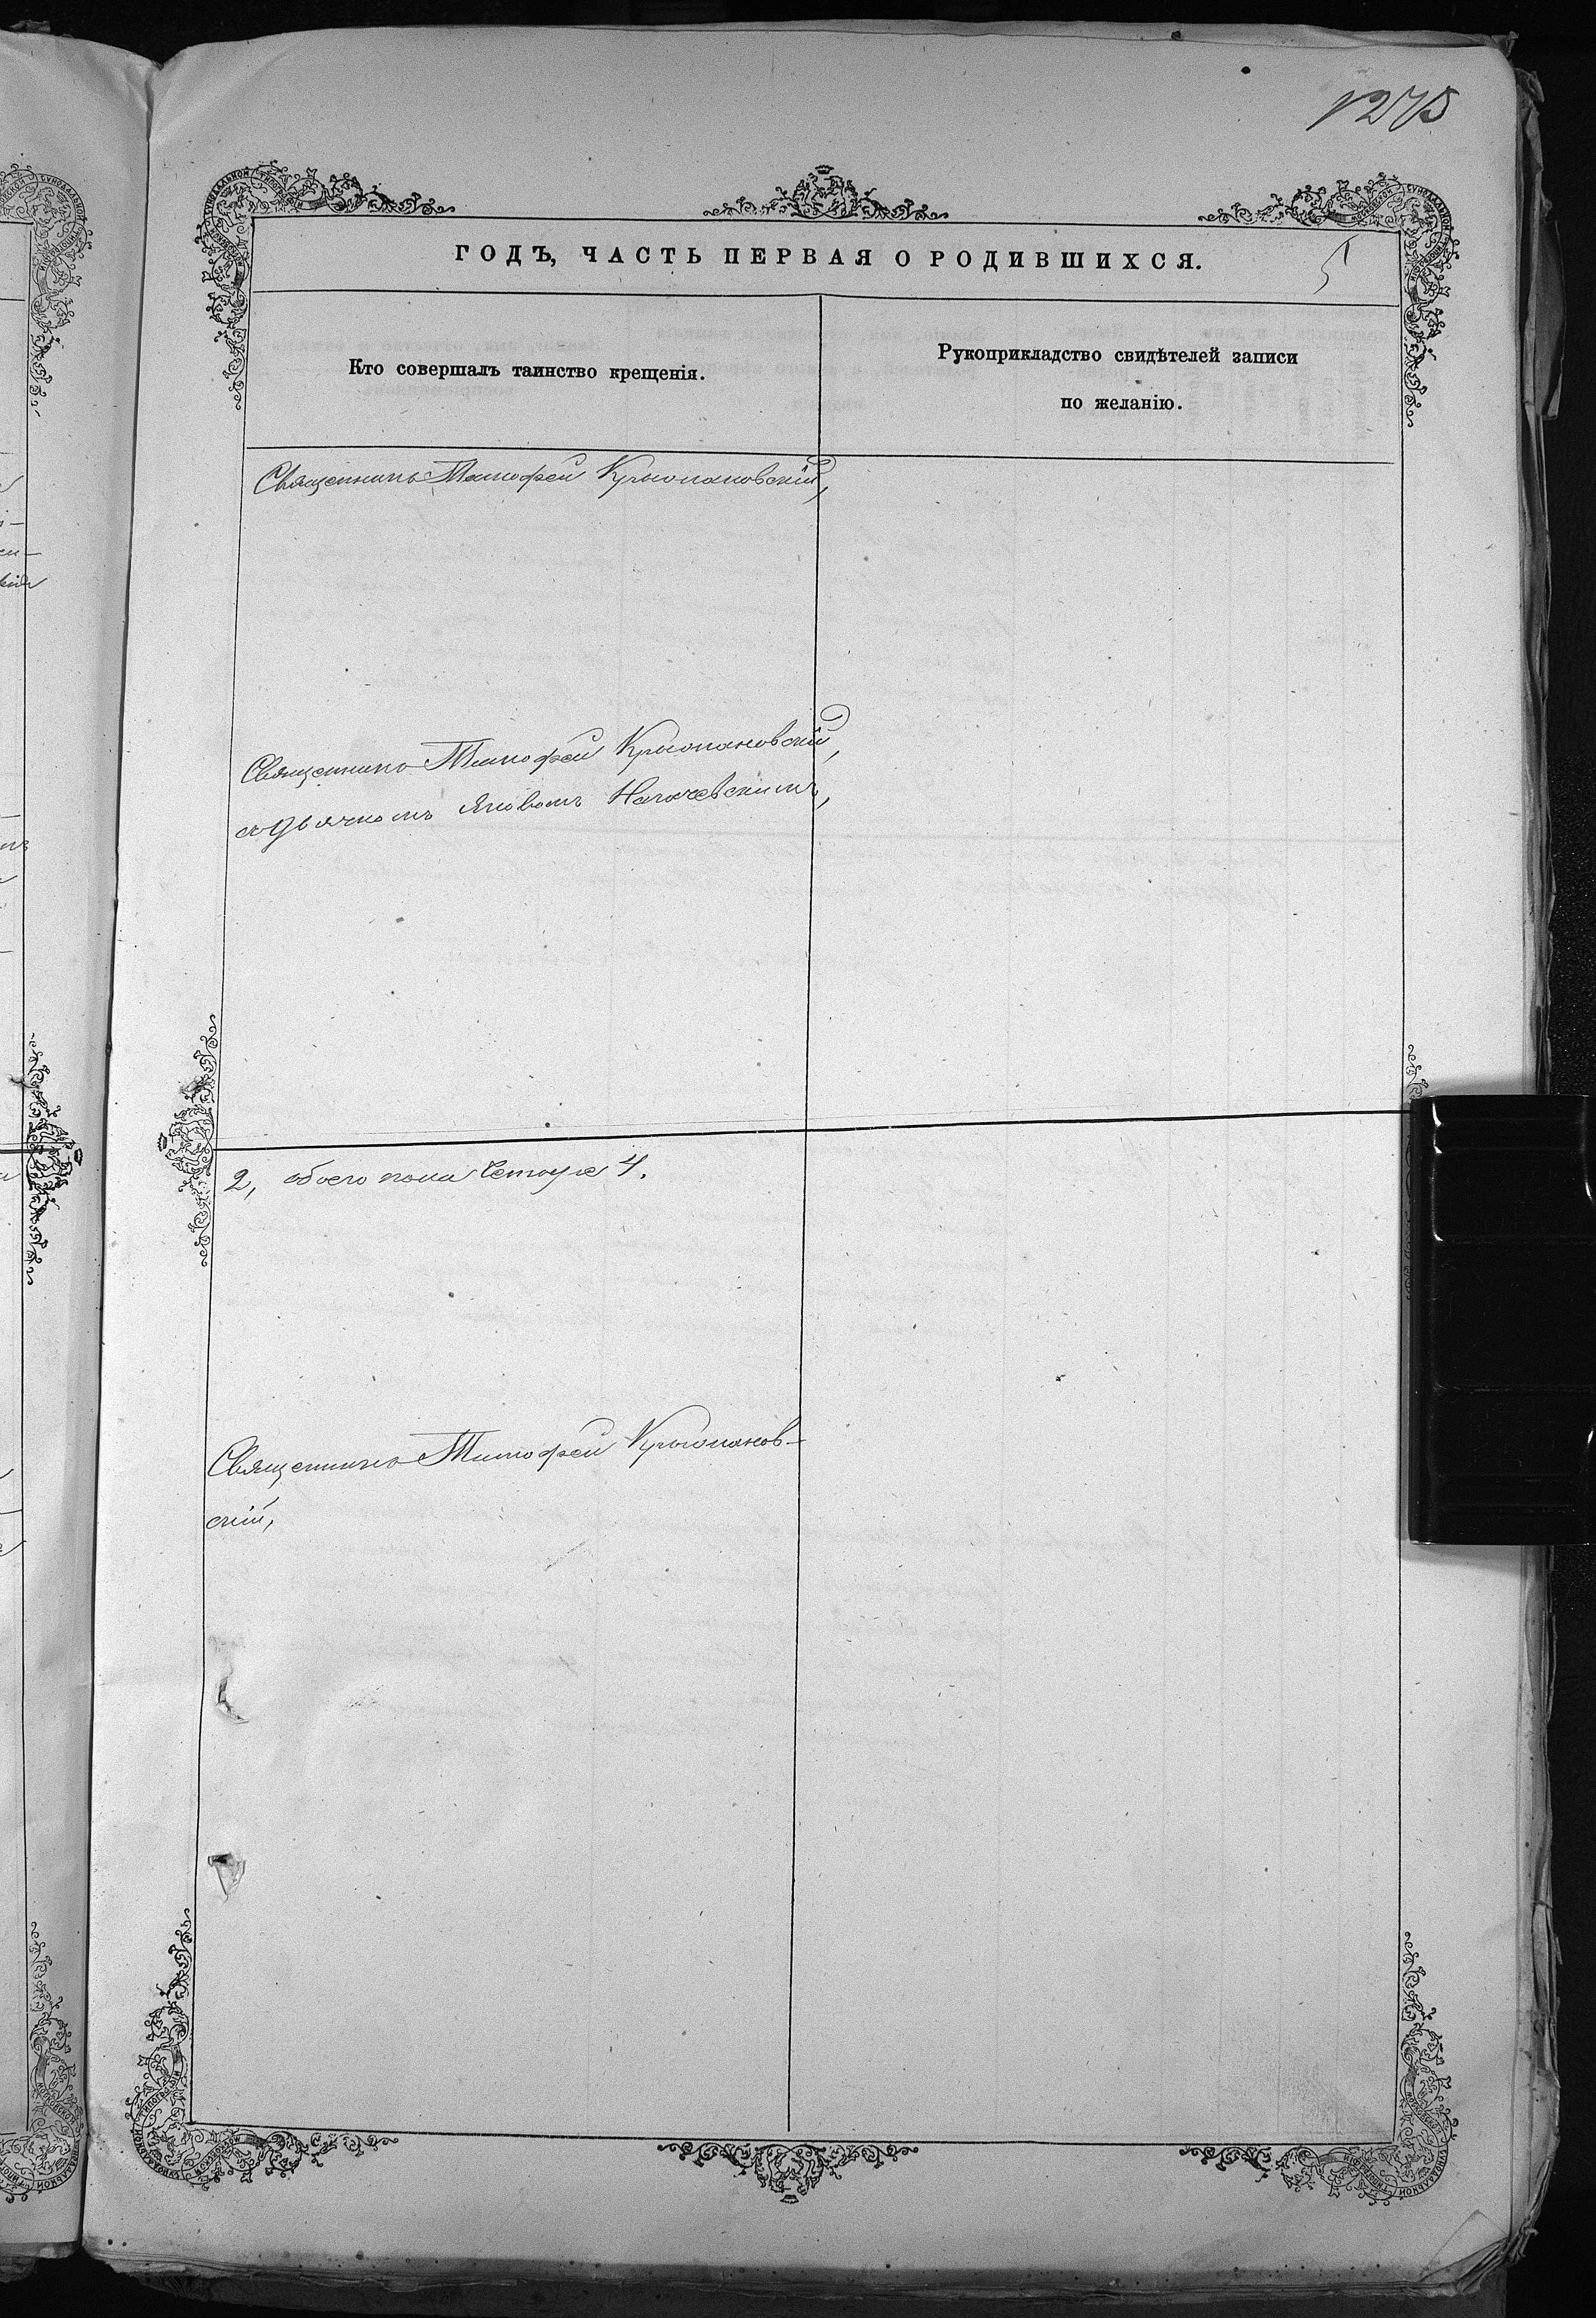 1275
ГОДЪ, ЧАСТЬ ПЕРВАЯ О РОДИВШИХСЯ.
5
Кто совершалъ таинство крещенія.
Рукоприкладство свидѣтелей записи
по желанію.
Священникъ Тимофей Крыжановскій,
Священникъ Тимофей Крыжановскій,
съ дьячкомъ Яковомъ
2, обоего пола четыре 4.
Священникъ Тимофей Крыжанов-
скій,